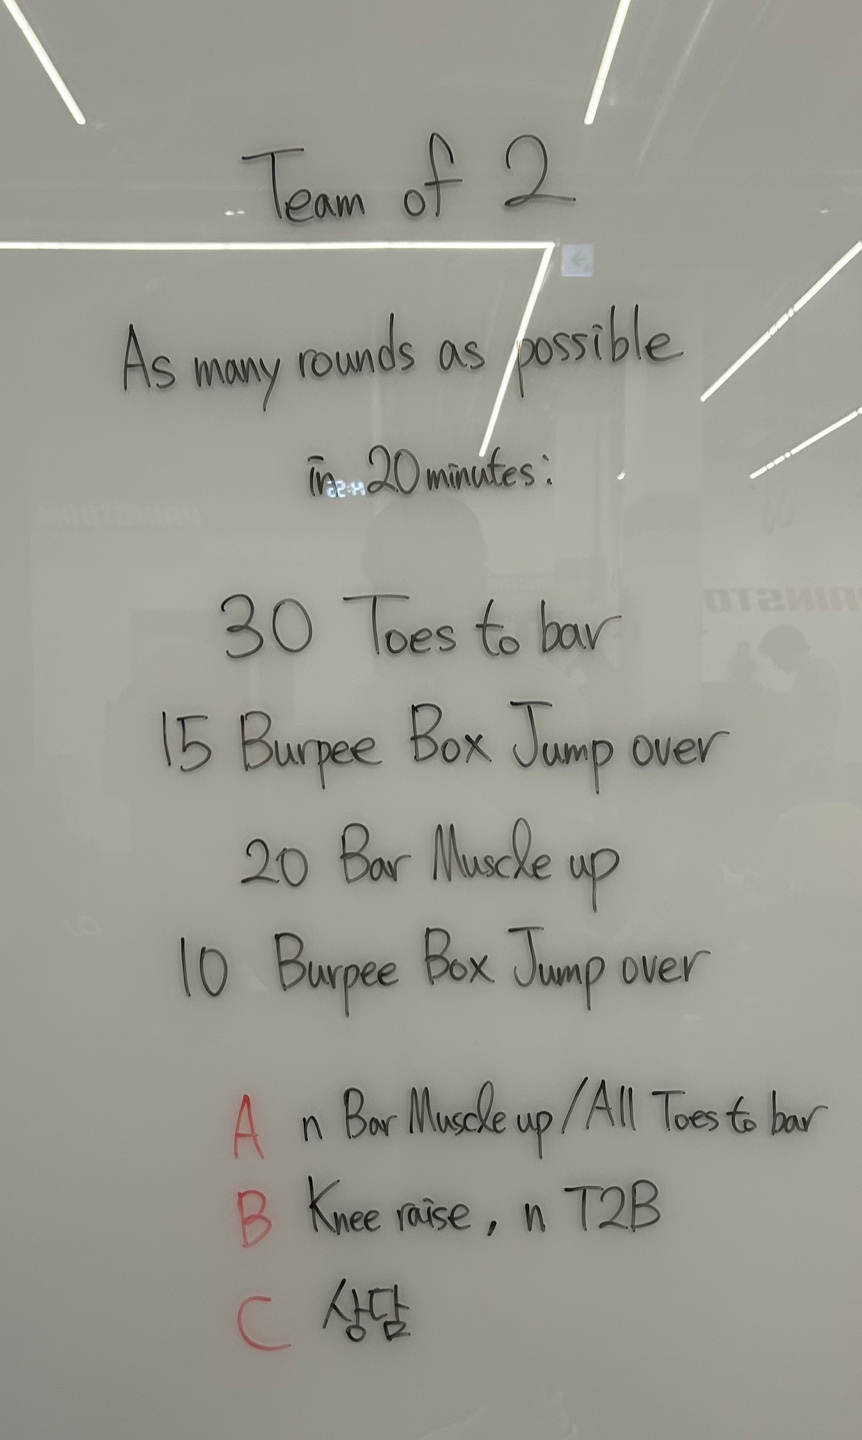 Team of 2
As many rounds as possible
in 20 minutes:
30 Toes to bar
15 Burpee Box Jump over
20 Bar Muscle up
10 Burpee Box Jump over
A n Bar Muscle up / All Toes to bar
B Knee raise, n T2B
C 상담